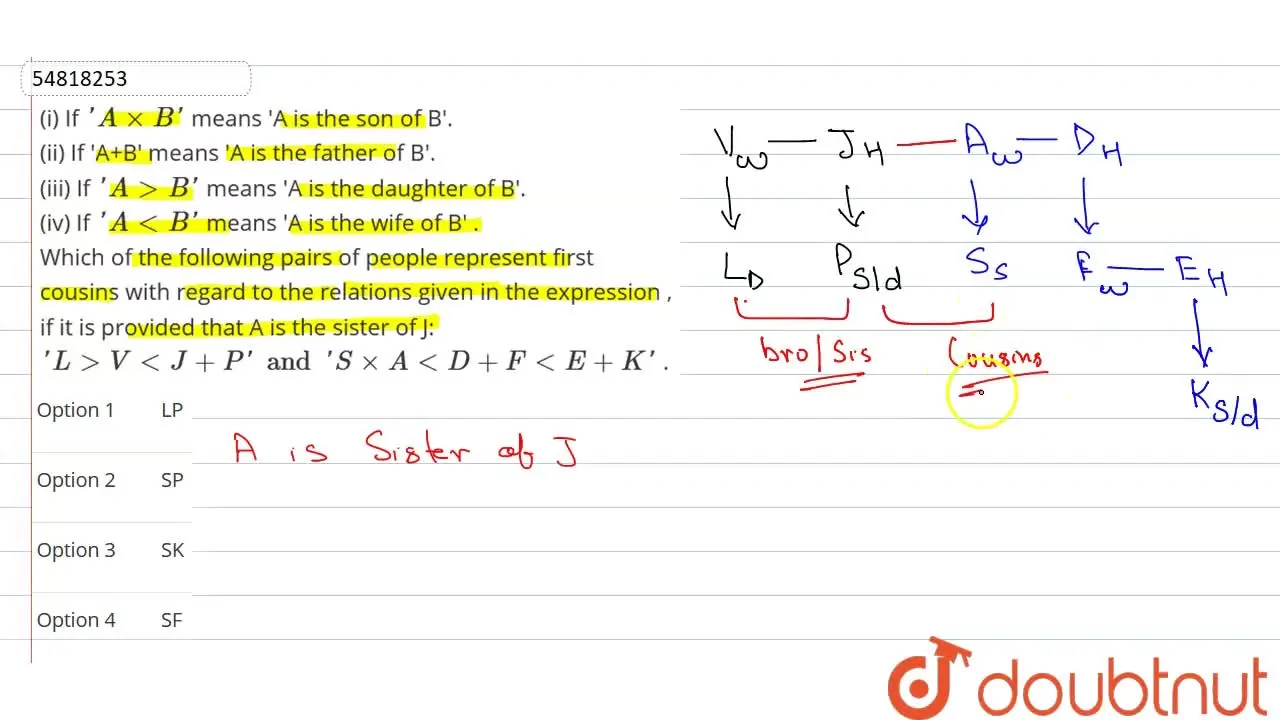 54818253
(i) If ' A × B' means 'A is the son of B'.
(ii) If 'A+B' means 'A is the father of B'.
(iii) If ' A > B' means 'A is the daughter of B'.
(iv) If ' A < B' means 'A is the wife of B' .
Which of the following pairs of people represent first
cousins with regard to the relations given in the expression ,
if it is provided that A is the sister of J:
' L > V < J + P' and ' S × A < D + F < E + K' .
Option 1 LP
Option 2 SP
Option 3 SK
Option 4 SF
A is Sister of J
V w — J H — A w — D H
L D P S/d S S F w — E H
bro/Sis Cousins
K S/d
doubtnut